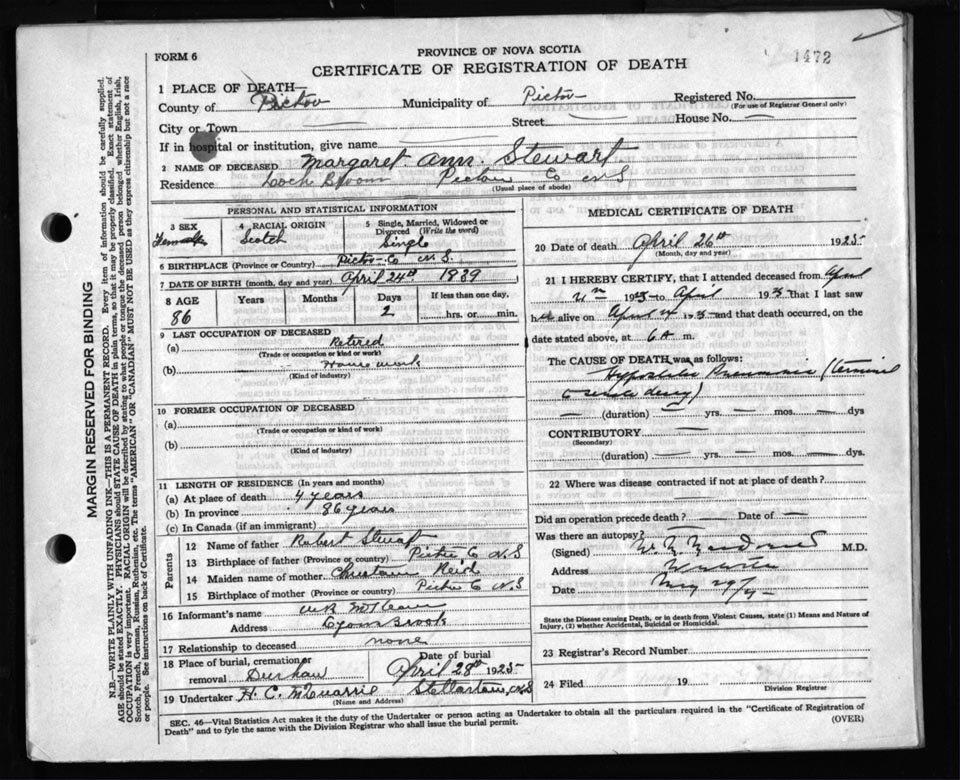 1472
FORM 6
PROVINCE OF NOVA SCOTIA
CERTIFICATE OF REGISTRATION OF DEATH
1 PLACE OF DEATH—
County of Pictou Municipality of Pictou Registered No.
(For use of Registrar General only)
City or Town — Street — House No. —
If in hospital or institution, give name
2 NAME OF DECEASED Margaret Ann. Stewart
Residence Loch Broom Pictou Co N S
(Usual place of abode)
PERSONAL AND STATISTICAL INFORMATION
3 SEX 4 RACIAL ORIGIN 5 Single, Married, Widowed or Divorced (Write the word)
Female Scotch Single
6 BIRTHPLACE (Province or Country) Pictou Co N. S.
7 DATE OF BIRTH (month, day and year) April 24th 1839
8 AGE Years Months Days If less than one day,
86 2 hrs. or min.
9 LAST OCCUPATION OF DECEASED
(a) Retired
(Trade or occupation or kind or work)
(b) Housework
(Kind of industry)
10 FORMER OCCUPATION OF DECEASED
(a)
(Trade or occupation or kind of work)
(b)
(Kind of industry)
11 LENGTH OF RESIDENCE (In years and months)
(a) At place of death 4 years
(b) In province 86 years
(c) In Canada (if an immigrant)
Parents
12 Name of father Robert Stewart
13 Birthplace of father (Province or country) Pictou Co N S
14 Maiden name of mother Reid
15 Birthplace of mother (Province or country) Pictou Co N S
16 Informant's name
Address Lyons Brook
17 Relationship to deceased none
18 Place of burial, cremation or removal Durham Date of burial April 28th 1925
19 Undertaker H. C. McQuarrie Stellarton, N S
(Name and Address)
MEDICAL CERTIFICATE OF DEATH
20 Date of death April 26th 1925
(Month, day and year)
21 I HEREBY CERTIFY, that I attended deceased from April
19 to April 19 that I last saw
h alive on April 19 and that death occurred, on the
date stated above, at 6 A m.
The CAUSE OF DEATH was as follows:
Hypostatic Pneumonia (terminal
(duration) — yrs. — mos. — dys
CONTRIBUTORY —
(Secondary)
(duration) — yrs. — mos. — dys.
22 Where was disease contracted if not at place of death?
Did an operation precede death? — Date of —
Was there an autopsy?
(Signed) M.D.
Address
Date
State the Disease causing Death, or in death from Violent Causes, state (1) Means and Nature of
Injury, (2) whether Accidental, Suicidal or Homicidal.
23 Registrar's Record Number
24 Filed 19
Division Registrar
SEC. 46—Vital Statistics Act makes it the duty of the Undertaker or person acting as Undertaker to obtain all the particulars required in the "Certificate of Registration of
Death" and to fyle the same with the Division Registrar who shall issue the burial permit.
(OVER)
MARGIN RESERVED FOR BINDING
N.B.—WRITE PLAINLY WITH UNFADING INK—THIS IS A PERMANENT RECORD. Every item of information should be carefully supplied.
AGE should be stated EXACTLY. PHYSICIANS should STATE CAUSE OF DEATH in plain terms, so that it may be properly classified. Exact statement of
OCCUPATION is very important. RACIAL ORIGIN will be described by stating to what people or tongue the deceased person belonged whether English, Irish,
Scotch, French, German, Russian, Ruthenian, etc. The terms "AMERICAN" OR "CANADIAN" MUST NOT BE USED as they express citizenship but not a race
or people. See instructions on back of Certificate.